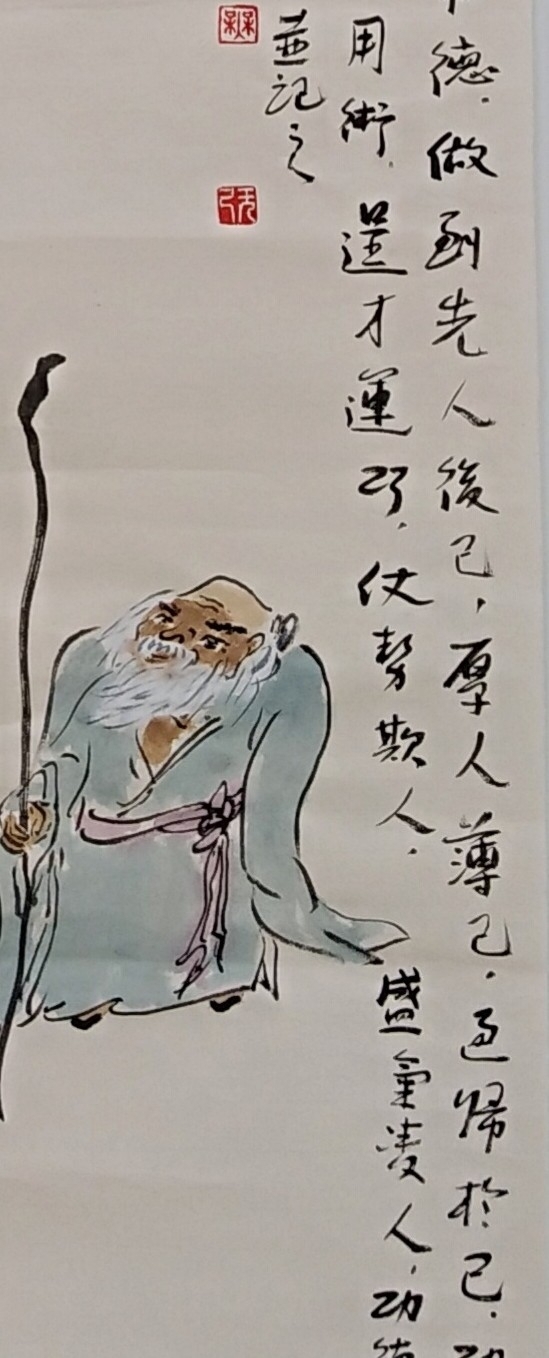 德，做到先人後己，厚人薄己，過歸於己，
用術，逞才運巧，仗勢欺人，盛氣凌人，功
並記之